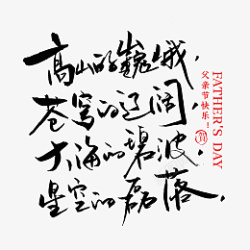 高山的巍峨,
苍穹的辽阔,
大海的碧波,
星空的磊落,
父亲节快乐!
FATHER'S DAY